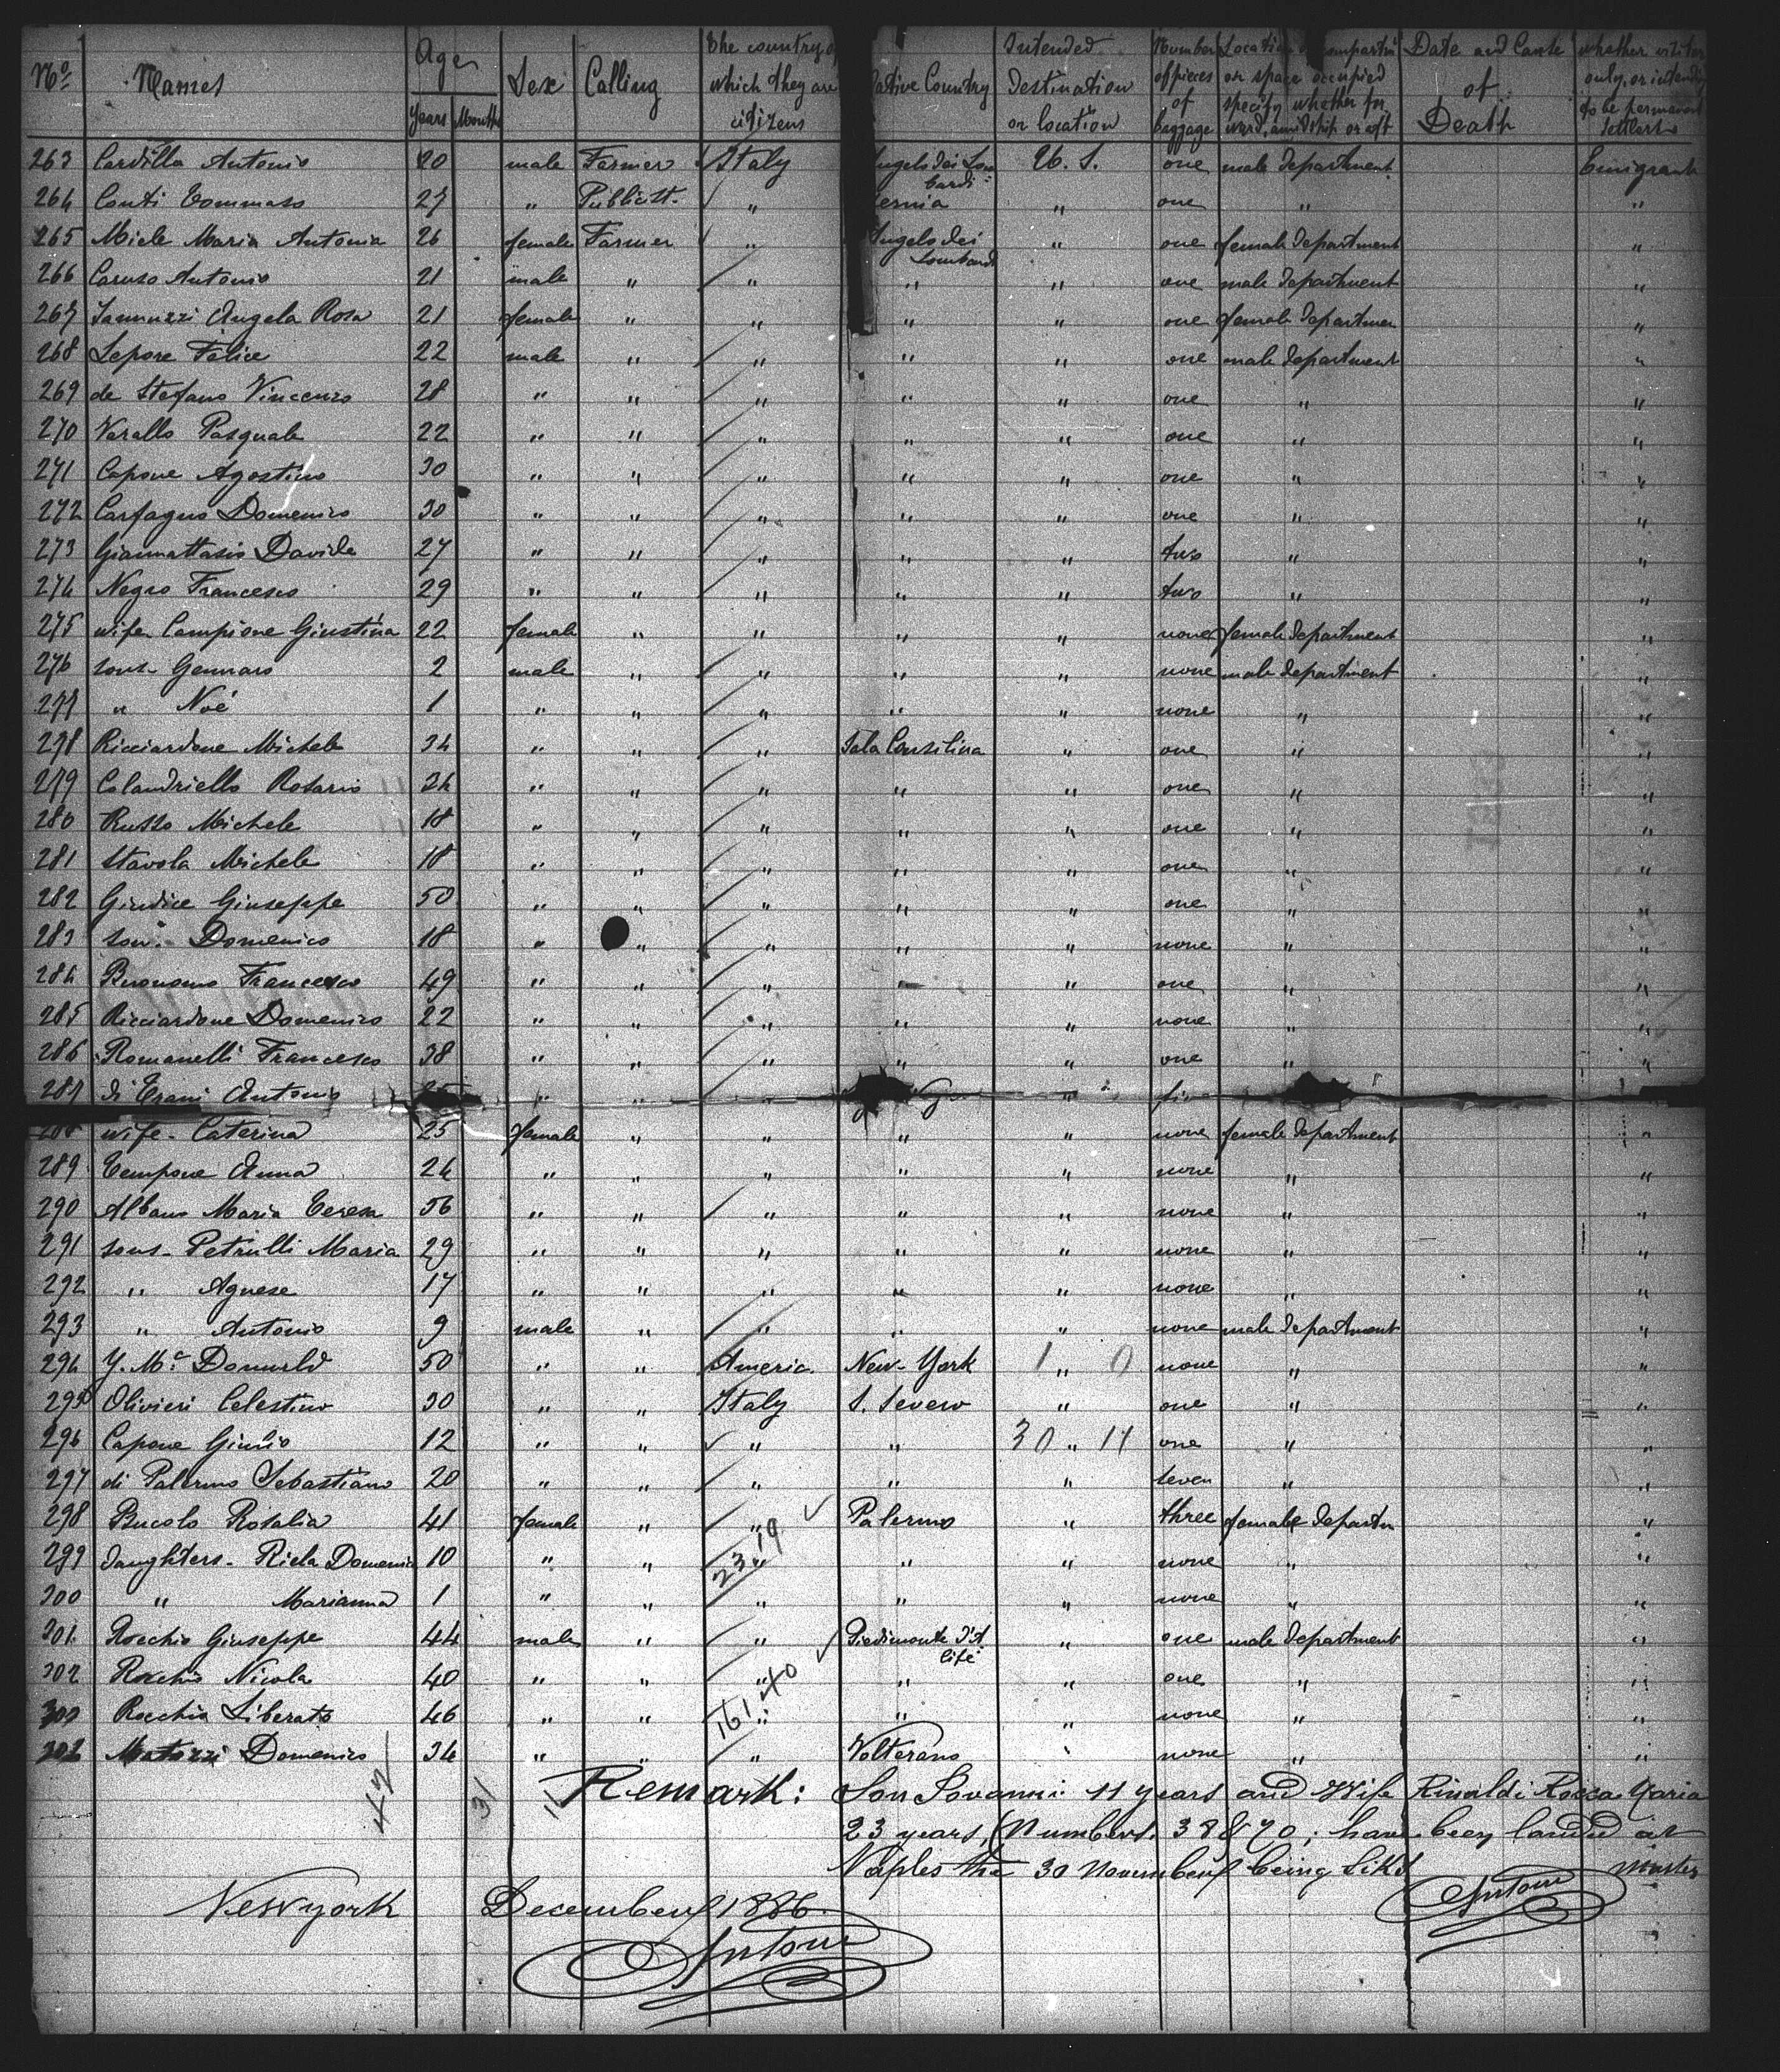 No. Names Age Years Months Sex Calling The country of which they are citizens Native Country Intended Destination or location Number of pieces of baggage Location of compartment or space occupied specify whether forward, amidship or aft Date and Cause of Death whether visitor only, or intending to be permanent settlers
263 Cardilla Antonio 20 male Farmer Italy Angelo dei Lombardi U. S. one male department Emigrant
264 Conti Tommaso 27 " Publicist " " one " "
265 Miele Maria Antonia 26 female Farmer " Angelo dei Lombardi " one female department "
266 Caruso Antonio 21 male " " " " one male department "
267 Iannuzzi Angela Rosa 21 female " " " " one female departmen "
268 Lepore Felice 22 male " " " " one male department "
269 de Stefano Vincenzo 28 " " " " " one " "
270 Varallo Pasquale 22 " " " " " one " "
271 Capone Agostino 30 " " " " " one " "
272 Carfagno Domenico 30 " " " " " one " "
273 Giammattasio Davide 27 " " " " " two " "
274 Negro Francesco 29 " " " " " two " "
275 wife Campione Giustina 22 female " " " " none female department "
276 sons - Gennaro 2 male " " " " none male department "
277 " Noé 1 " " " " " none " "
278 Ricciardone Michele 34 " " " Sala Consilina " one " "
279 Colandriello Rosario 34 " " " " " one " "
280 Russo Michele 18 " " " " " one " "
281 Stavola Michele 18 " " " " " one " "
282 Giudice Giuseppe 50 " " " " " one " "
283 son: Domenico 18 " " " " " none " "
284 Buonomo Francesco 49 " " " " " one " "
285 Ricciardone Domenico 22 " " " " " none " "
286 Romanelli Francesco 38 " " " " " one " "
287 di Trani Antonio " " " "
wife - Caterina 25 female " " " " none female department "
289 Tempone Anna 24 " " " " " none " "
290 Albano Maria Teresa 56 " " " " " none " "
291 sons - Petrulli Maria 29 " " " " " none " "
292 " Agnese 17 " " " " " none " "
293 " Antonio 9 male " " " " none male department "
294 Y. Mc Donuald 50 " " America New-York 1 " 0 none " "
295 Olivieri Celestino 30 " " Italy S. Severo " one " "
296 Capone Giulio 12 " " " " 30 " 11 one " "
297 di Palermo Sebastiano 20 " " " " " seven " "
298 Bucolo Rosalia 41 female " " Palermo " three female departm "
299 daughters - Riela Domenica 10 " " " " " none " "
300 " Marianna 1 " " " " " none " "
301 Rocchio Giuseppe 44 male " " Piedimonte d'Alife " one male department "
302 Rocchio Nicola 40 " " " " " one " "
303 Rocchio Liberato 46 " " " " " none " "
Matozzi Domenico 34 " " " Volterano none " "
Remark: Son Iovanni 11 years and Wife Rinaldi Rocca Maria
23 years, (Numbers. 38 & 70; have been landed at
Naples the 30 November being sik
Master
New york December 1886.